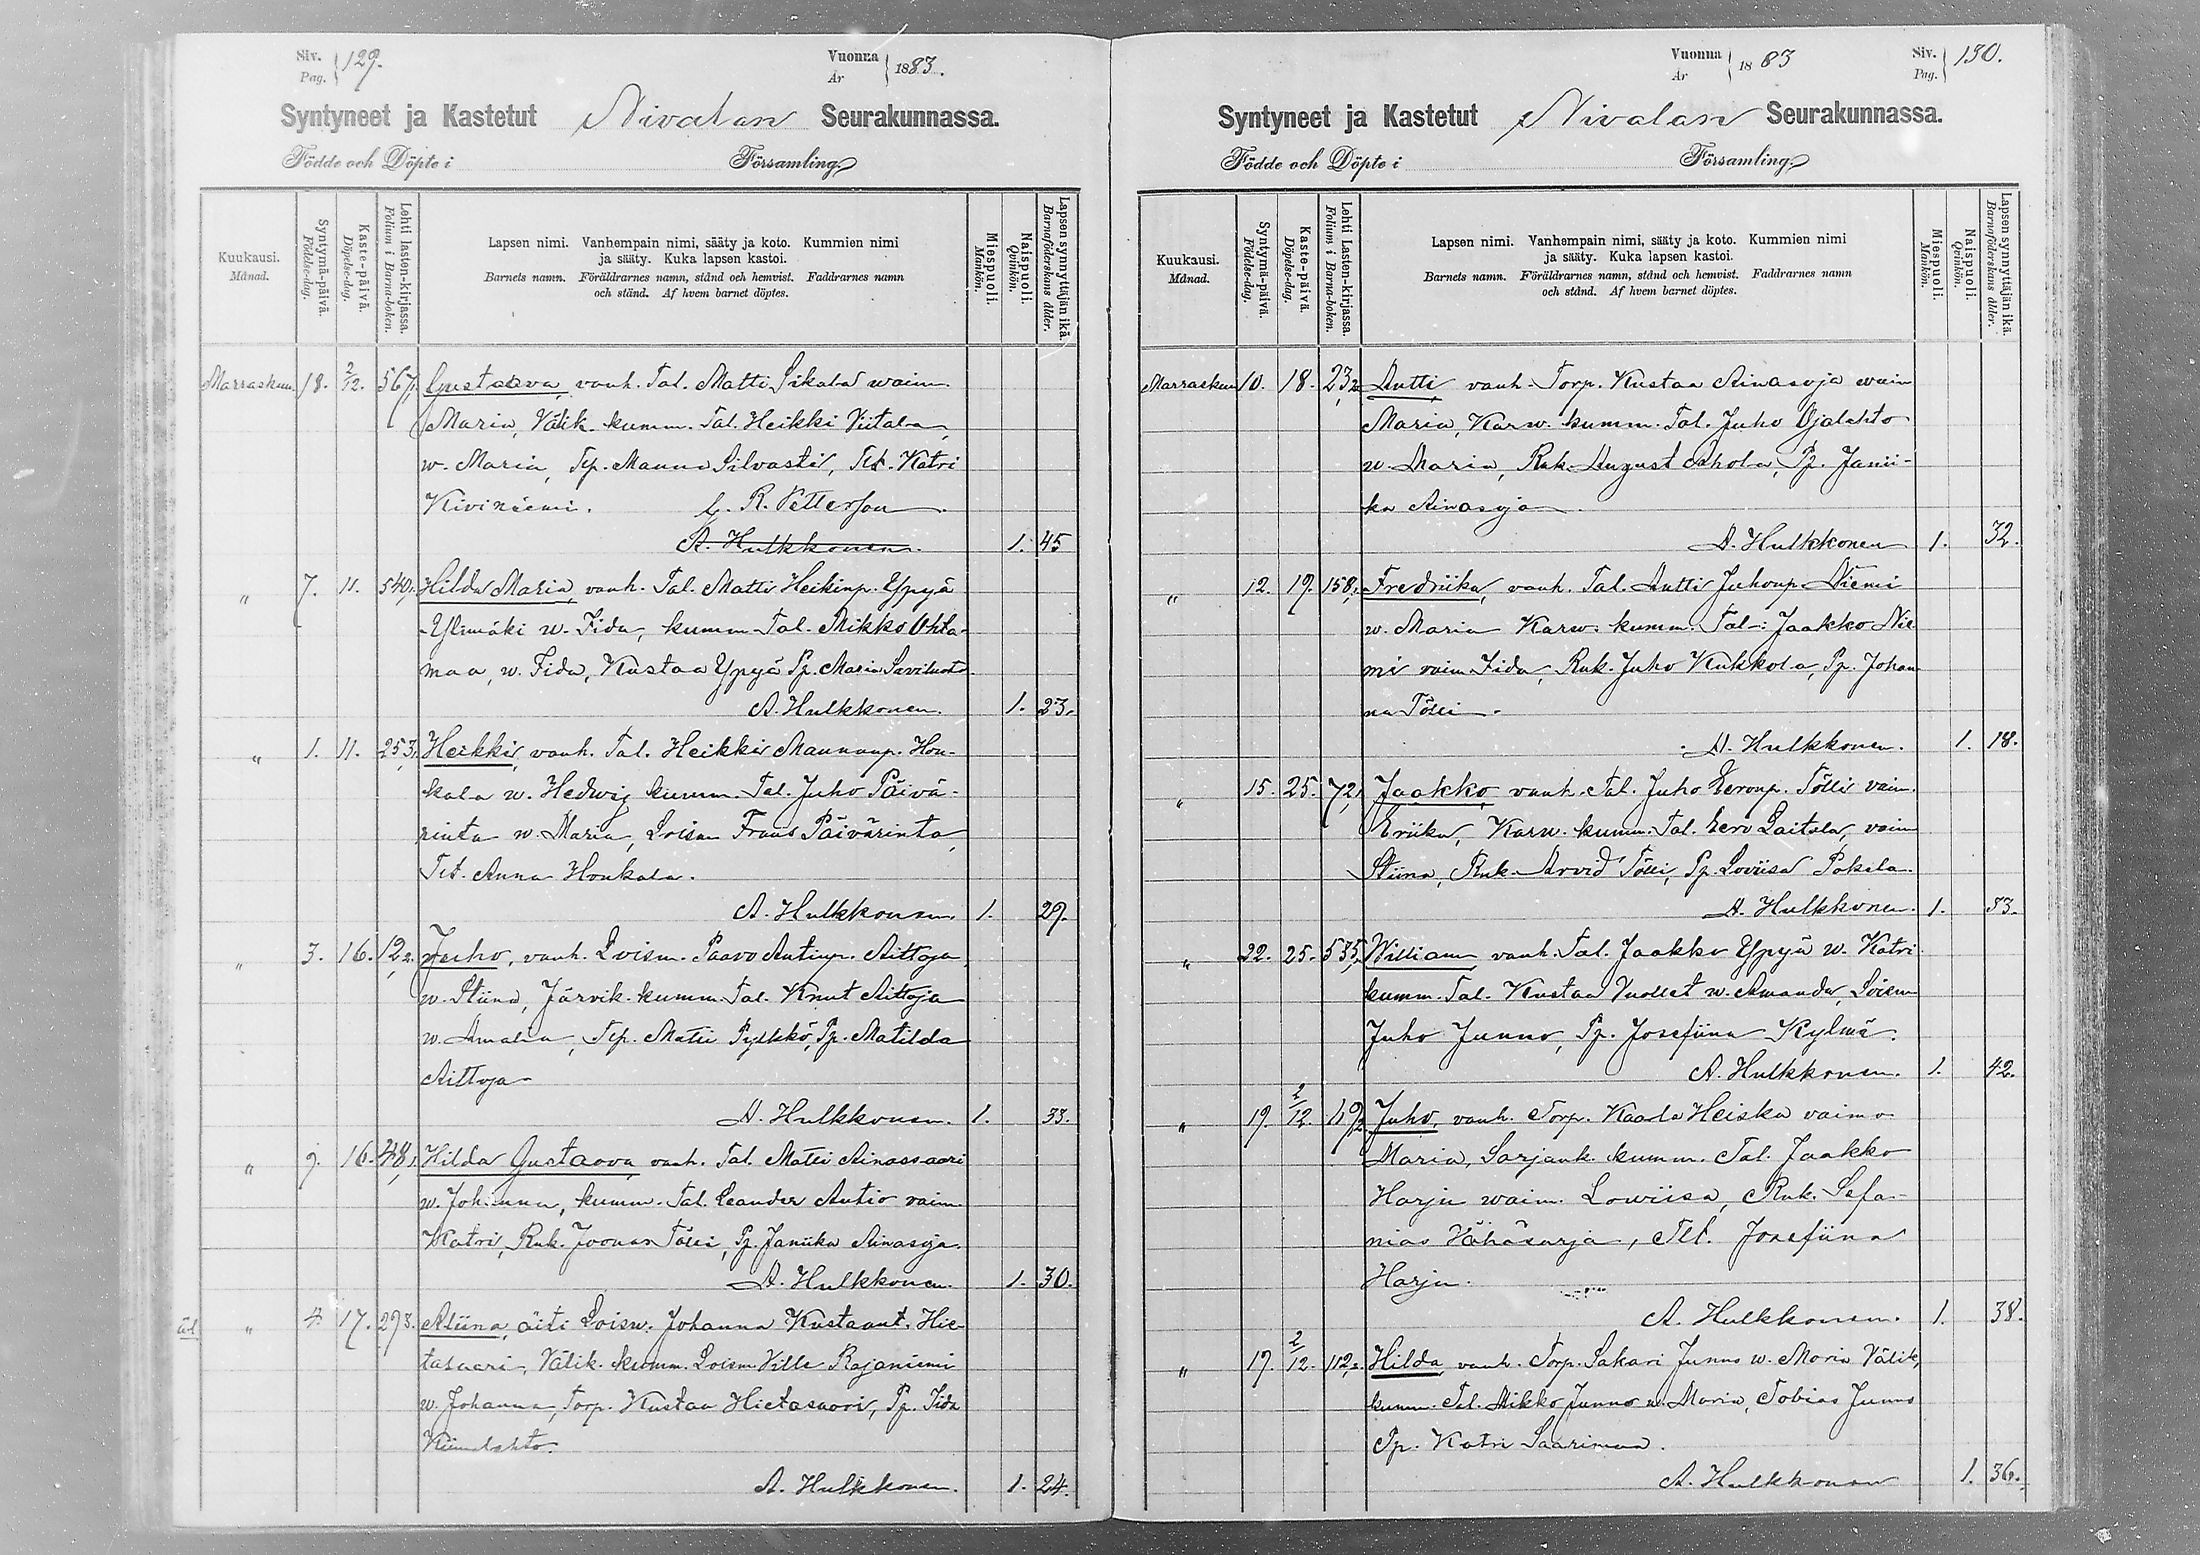 Siv. Pag. 129.
Vuonna År 1883.
Syntyneet ja Kastetut Nivalan Seurakunnassa.
Födde och Döpte i Församling.
Kuukausi. Månad.
Syntymä-päivä. Födelse-dag.
Kaste-päivä. Döpelse-dag.
Lehti lasten-kirjassa. Folium i Barna-boken.
Lapsen nimi. Vanhempain nimi, sääty ja koto. Kummien nimi
ja sääty. Kuka lapsen kastoi.
Barnets namn. Föräldrarnes namn, stånd och hemvist. Faddrarnes namn
och stånd. Af hvem barnet döptes.
Miespuoli. Mankön.
Naispuoli. Qvinkön.
Lapsen synnyttäjän ikä. Barnaföderskans ålder.
Marraskuu. 18. 2/12. 567. Gustaava, vanh. Tal. Matti Sikala waim
Maria, Välik. kumm. Tal. Heikki Viitala,
w. Maria, Tp. Mauno Silvasti, Tlt. Katri
Kiviniemi. R. Petterson.
A. Hulkkonen. 1. 45
" 7. 11. 540. Hilda Maria, vanh. Tal. Matti Heikinp. Yppyä
Ylimäki w. Fida, kumm. Tal. Mikko Uhta-
maa, w. Fida, Kustaa Yppyä Pz. Maria Saviluoto.
A. Hulkkonen. 1. 23.
" 1. 11. 253. Heikki, vanh. Tal. Heikki Maununp. Hon-
kala w. Hedwig kumm. Tal. Juho Päivä-
rinta w. Maria, Loism Frans Päivärinta,
Tlt. Anna Honkala.
A. Hulkkonen. 1. 29.
" 3. 16. 122. Juho, vanh. Loism. Paavo Antinp. Aittoja,
w. Stiina, Järvik. kumm. Tal. Knut Aittoja
w. Amalia, Tlp. Matti Pylkkö, Pz. Matilda
Aittoja
A. Hulkkonen. 1. 33.
" 9. 16. 48. Hilda Gustaava, vanh. Tal. Matti Ainassaari
w. Johanna, kumm. Tal. Leander Autio vaim.
Katri, Rnk. Joonas Tölli, Pz. Janiika Ainasoja.
A. Hulkkonen. 1. 30.
äl. " 4. 17. 273. Aliina, äiti Loisn. Johanna Kustaant. Hie-
tasaari, Välik. kumm. Loism Ville Rajaniemi
w. Johanna, Torp. Kustaa Hietasaari, Pz. Iida
A. Hulkkonen. 1. 24.
Vuonna År 1883
Siv. Pag. 130.
Syntyneet ja Kastetut Nivalan Seurakunnassa.
Födde och Döpte i Församling.
Kuukausi. Månad.
Syntymä-päivä. Födelse-dag.
Kaste-päivä. Döpelse-dag.
Lehti Lasten-kirjassa. Folium i Barna-boken.
Lapsen nimi. Vanhempain nimi, sääty ja koto. Kummien nimi
ja sääty. Kuka lapsen kastoi.
Barnets namn. Föräldrarnes namn, stånd och hemvist. Faddrarnes namn
och stånd. Af hvem barnet döptes.
Miespuoli. Mankön.
Naispuoli. Qvinkön.
Lapsen synnyttäjän ikä. Barnaföderskans ålder.
Marraskuu 10. 18. 232. Antti, vanh. Torp. Kustaa Ainasoja waim
Maria, Karw. kumm. Tal. Juho Ojalehto
w. Maria, Rnk. August Ahola, Pz. Janii-
ka Ainasoja
A. Hulkkonen 1. 32.
" 12. 19. 158. Fredriika, vanh. Tal. Antti Juhonp Niemi
w. Maria Karw. kumm. Tal: Jaakko Nie
mi vaim Fida, Rnk. Juho Kukkola, Pz. Johan
na Tölli.
A. Hulkkonen. 1. 18.
" 15. 25. 72. Jaakko, vanh. Tal. Juho Eeronp. Tölli vaim.
Eriika, Karw. kumm. Tal. Eero Laitala, vaim
Stiina, Rnk. Arvid Tölli, Pz. Loviisa Pokela.
A. Hulkkonen. 1. 33.
" 22. 25. 535. William, vanh. Tal. Jaakko Yppyä w. Katri
kumm. Tal. Kustaa Vuollet w. Amanda, Loism
Juho Junno, Pz. Josefiina Kylmä.
A. Hulkkonen. 1. 42.
" 19. 2/12. 1192. Juho, vanh. Torp. Kaarlo Heiska vaimo
Maria, Sarjank. kumm. Tal. Jaakko
Harju waim. Lowiisa, Rnk. Sefa-
nias Vähäsarja, Tlt. Josefiina
Harju.
A. Hulkkonen. 1. 38.
" 17. 2/12. 112. Hilda, vanh. Torp. Sakari Junno w. Maria Välik,
kumm. Tal. Mikko Junno w. Maria, Tobias Junno
Pp. Katri Saarimaa.
A. Hulkkonen 1. 36.